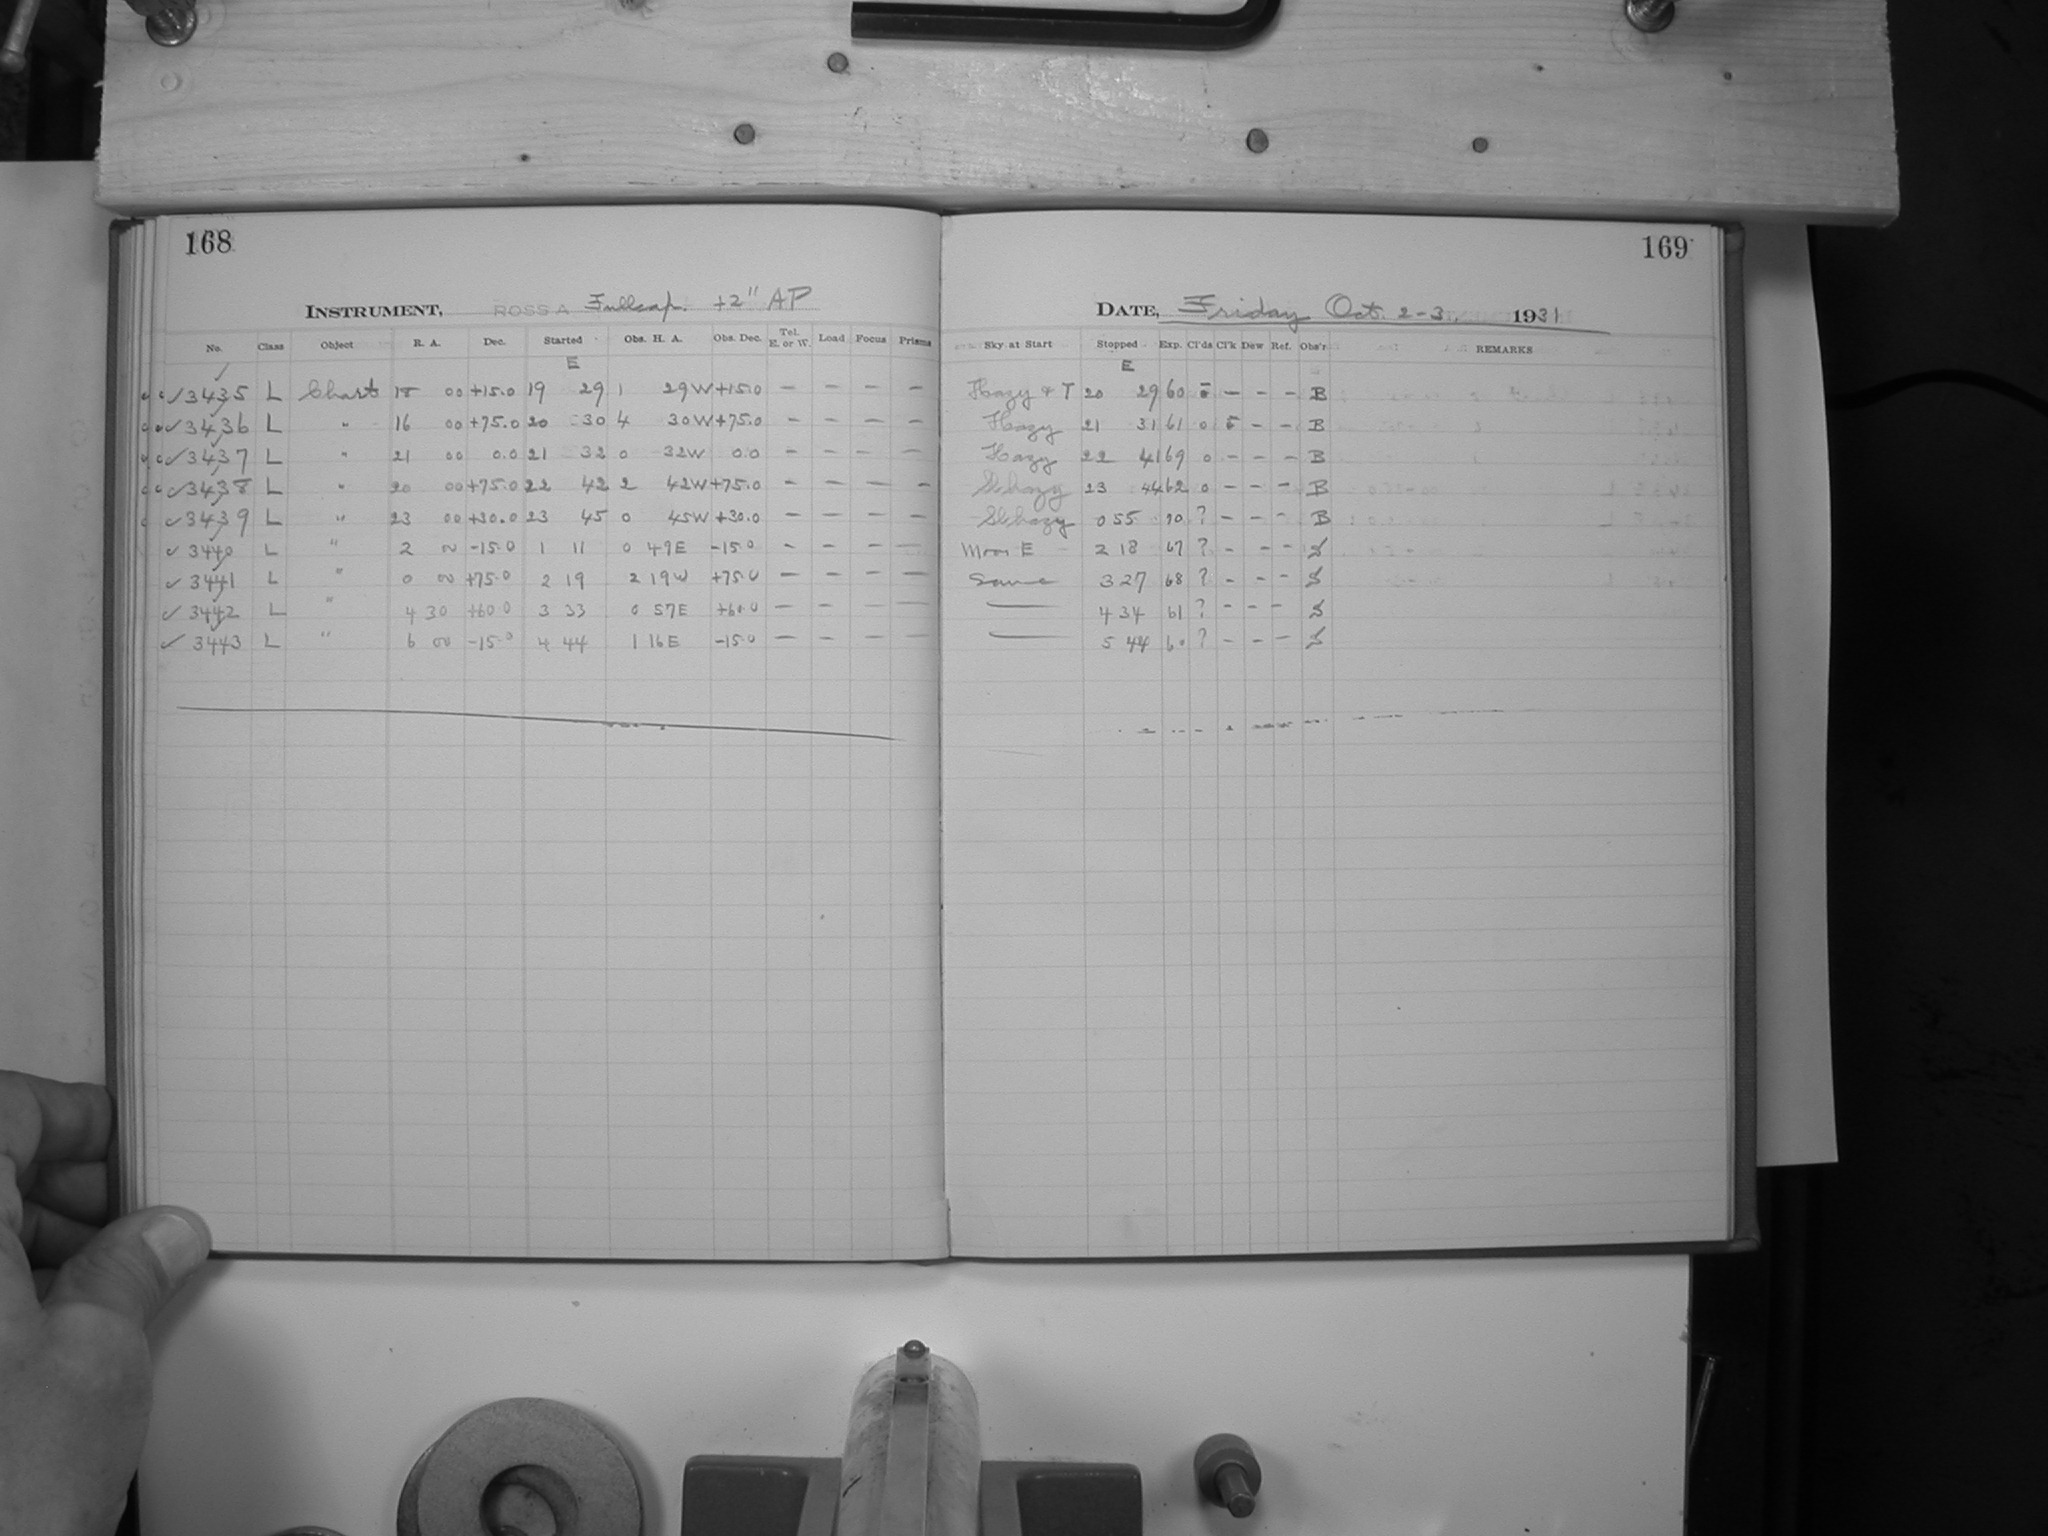 168
169
INSTRUMENT, ROSS A Fullcap. +2" AP
DATE, Friday Oct. 2-3. 1931
No. Class Object R. A. Dec. Started Obs. H. A. Obs. Dec. Tel. E. or W. Load Focus Prisms Sky at Start Stopped Exp. Cl'ds Cl'k Dew Ref. Obs'r REMARKS
E E
3435 L Chart 18 00 +15.0 19 29 1 29W +15.0 - - - - Hazy & T 20 29 60 ō - - - B
3436 L " 16 00 +75.0 20 30 4 30W +75.0 - - - - Hazy 21 31 61 0 ō - - B
3437 L " 21 00 0.0 21 32 0 32W 0.0 - - - - Hazy 22 41 69 0 - - - B
3438 L " 20 00 +75.0 22 42 2 42W +75.0 - - - - Sl hazy 23 44 62 0 - - - B
3439 L " 23 00 +30.0 23 45 0 45W +30.0 - - - - Sl hazy 0 55 70 ? - - - B
3440 L " 2 00 -15.0 1 11 0 49E -15.0 - - - - Moon E 2 18 67 ? - - - S
3441 L " 0 00 +75.0 2 19 2 19W +75.0 - - - - Same 3 27 68 ? - - - S
3442 L " 4 30 +60.0 3 33 0 57E +60.0 - - - - — 4 34 61 ? - - - S
3443 L " 6 00 -15.0 4 44 1 16E -15.0 - - - - — 5 44 60 ? - - - S